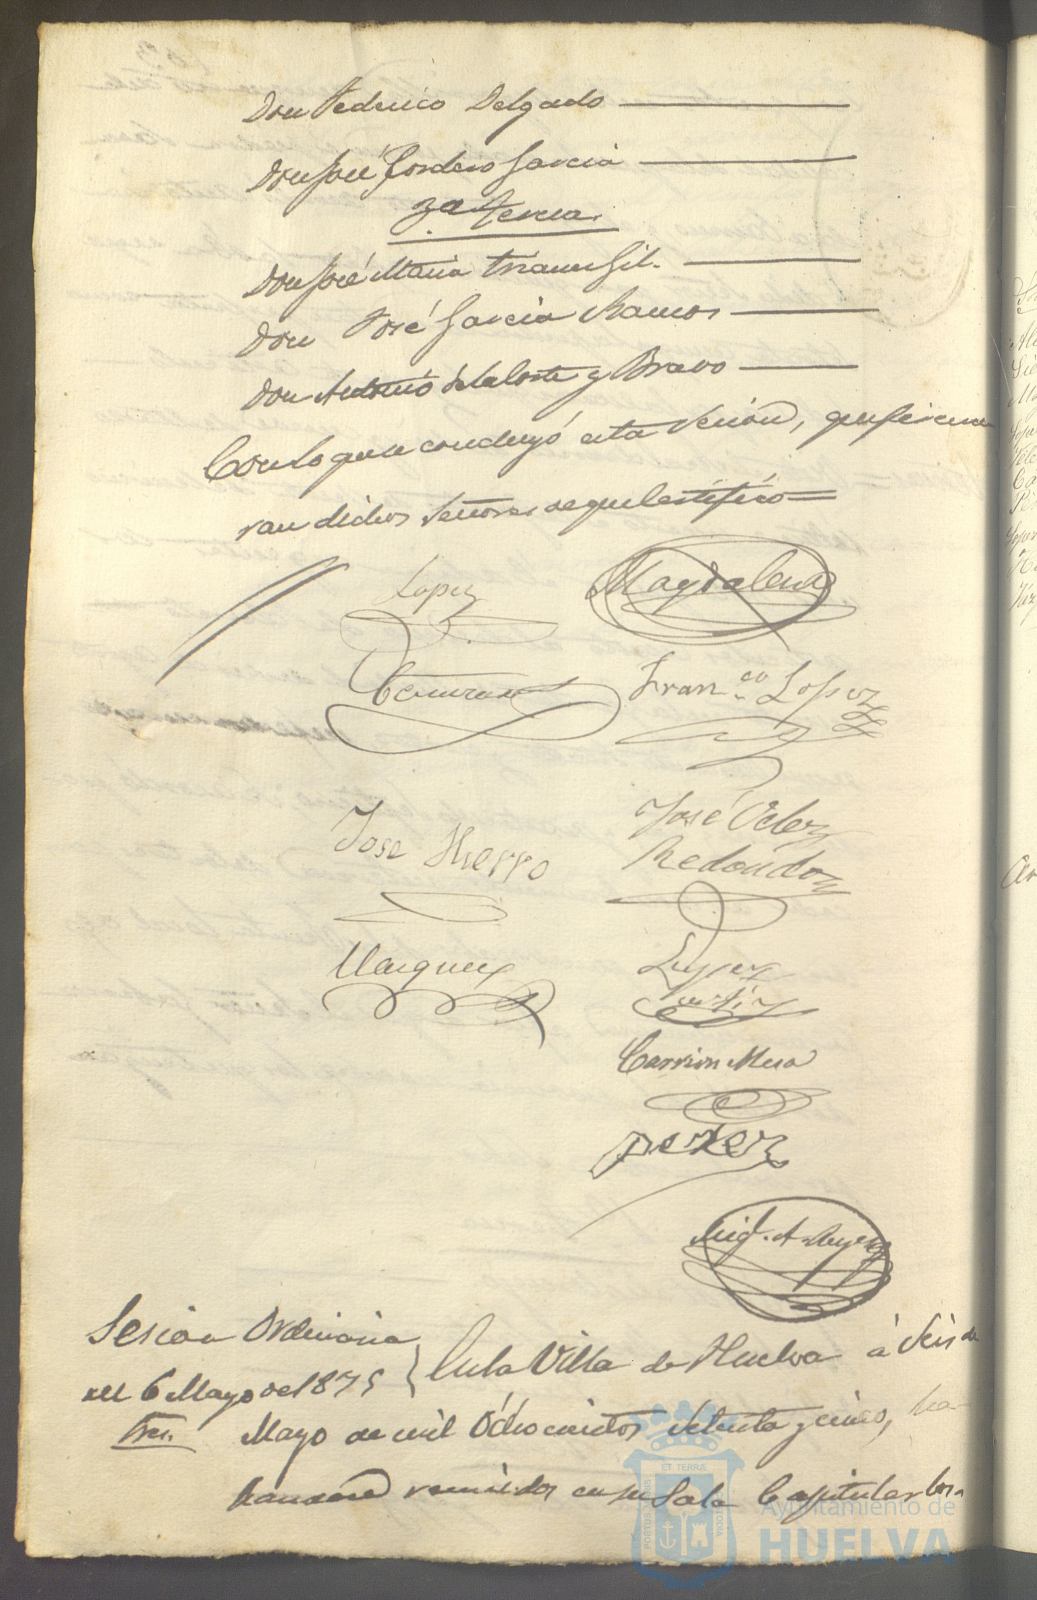 Don Federico Delgado
Don José Cordero Garcia
3.a Terna.
Don José Maria Trianes Gil.
Don José Garcia Ramos
Don Antonio de la Corte y Bravo
Con lo que se concluyó esta Sesion, que firma
ran dichos Señores de que Certifico
Lopez
Magdalena
Franco Lopez
José Velez
Redondo
Jose Hierro
Marquez
Lopez
Carrion Mesa
perez
Sesion Ordinaria
del 6 Mayo de 1875
En la Villa de Huelva á Seis de
Mayo de mil Ochocientos setenta y cinco,
reunidos en su Sala Capitular los
PORTUS MARIS ET TERRÆ CUSTODIA
Ayuntamiento de
HUELVA